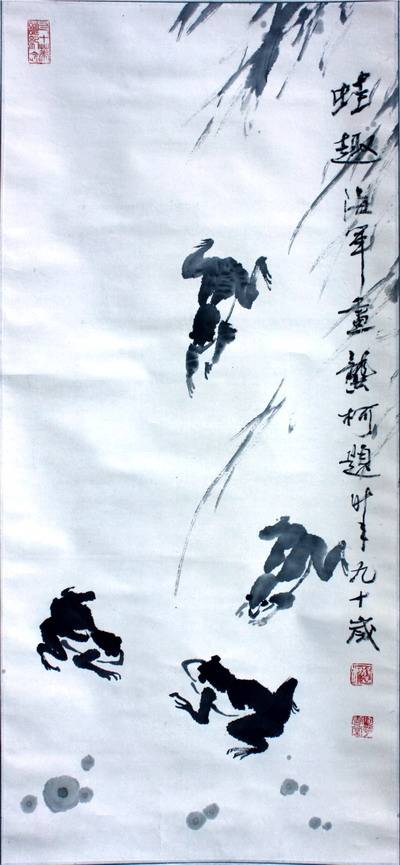 蛙趣 海军画 龚柯题 时年九十岁